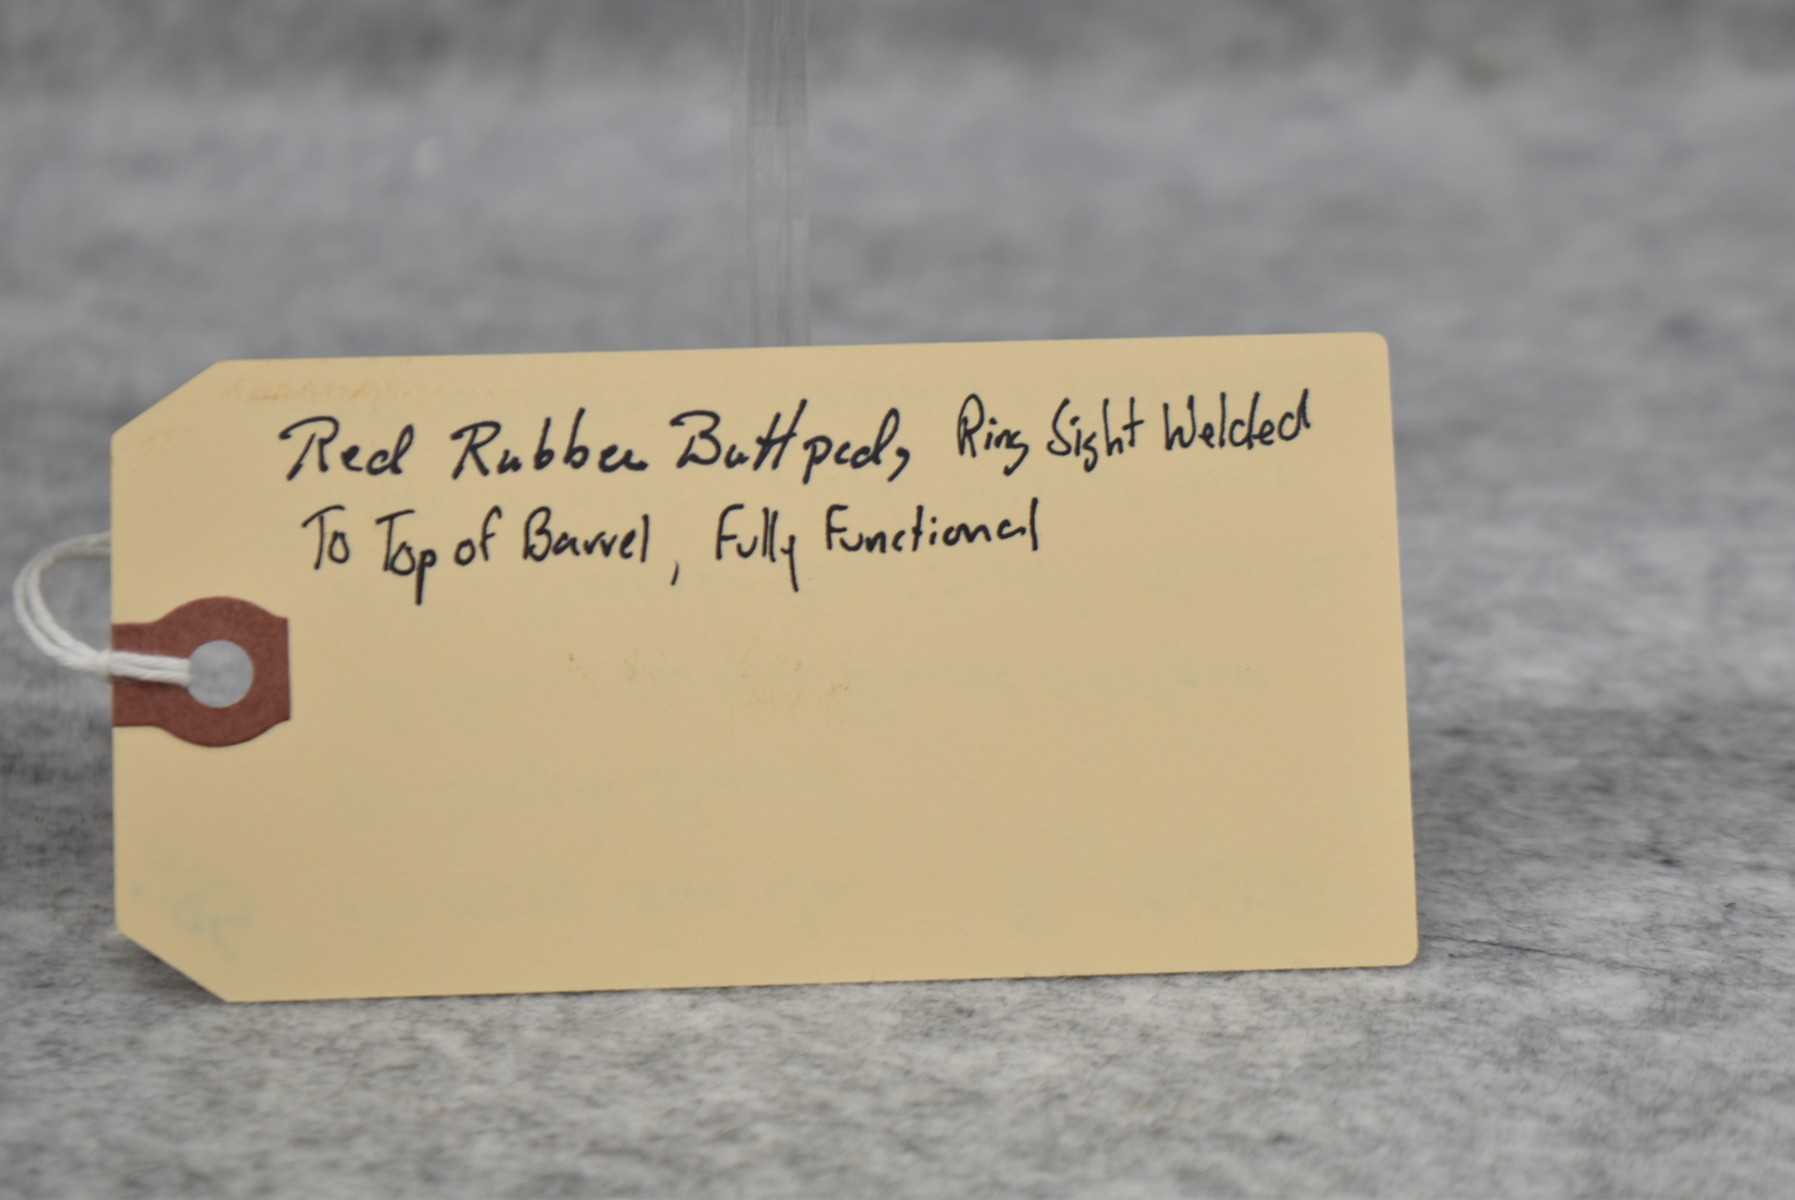 Red Rubber Buttpad, Ring Sight Welded
To Top of Barrel, Fully Functional